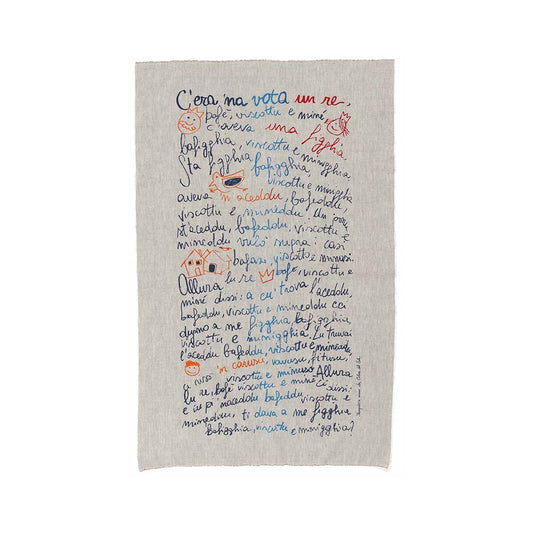 C'era 'na vota un re,
bofè, viscottu e minè
c'aveva una figghia
bafigghia, viscottu e minigghia
Sta figghia bafigghia,
viscottu e minigghia
aveva 'n aceddu, bafeddu,
viscottu e mineddu. Un jornu
st'aceddu, bafeddu, viscottu e
mineddu vulò supra i casi
bafasi, viscottu e minnasi.
Allura lu re, bofè, viscottu e
minè dissi: a cu trova l'aceddu,
bafeddu, viscottu e mineddu cci
dugnu a me figghia, bafigghia
viscottu e minigghia. Lu truvau
l'aceddu bafeddu, viscottu e mineddu
'n carusu, vavusu, fitusu,
viscottu e minusu. Allura
lu re, bofè viscottu e minè dissi:
naceddu bafeddu, viscottu e
mineddu, ti dava a me figghia
bafigghia, viscottu e minigghia?